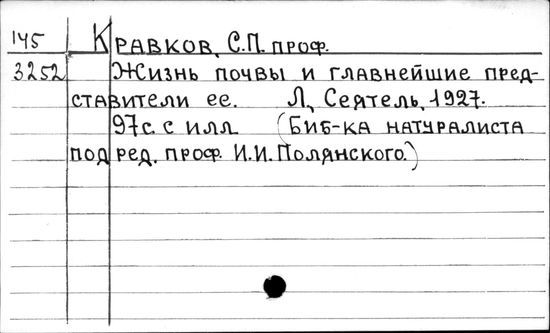 145 Кравков, С.П. проф.
3252 Жизнь почвы и главнейшие пред-
ставители ее. Л, Сеятель, 1927.
97с. с илл (Биб-ка натуралиста
под ред. проф. И.И.Полянского.)